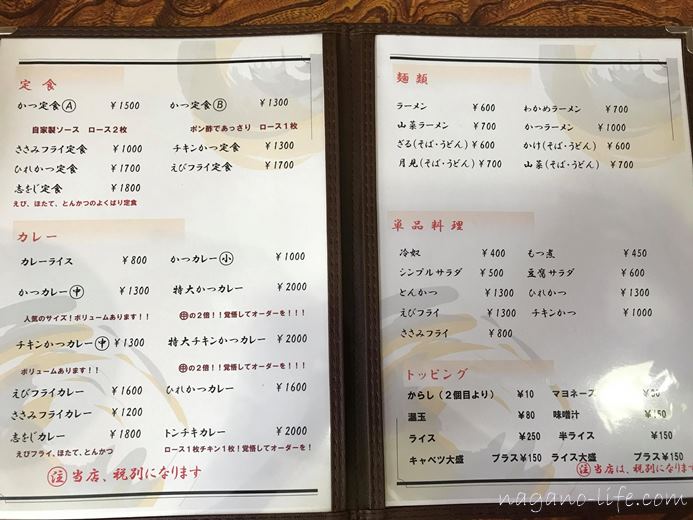 定食
かつ定食Ⓐ ￥1500 かつ定食Ⓑ ￥1300
自家製ソース ロース2枚 ポン酢であっさり ロース1枚
ささみフライ定食 ￥1000 チキンかつ定食 ￥1300
ひれかつ定食 ￥1700 えびフライ定食 ￥1700
志をじ定食 ￥1800
えび、ほたて、とんかつのよくばり定食
カレー
カレーライス ￥800 かつカレー㊙小 ￥1000
かつカレー㊥ ￥1300 特大かつカレー ￥2000
人気のサイズ！ボリュームあります！！ ㊥の2倍！！覚悟してオーダーを！！！
チキンかつカレー㊥ ￥1300 特大チキンかつカレー ￥2000
ボリュームあります！！ ㊥の2倍！！覚悟してオーダーを！！！
えびフライカレー ￥1600 ひれかつカレー ￥1600
ささみフライカレー ￥1200
志をじカレー ￥1800 トンチキカレー ￥2000
えびフライ、ほたて、とんかつ ロース1枚チキン1枚！覚悟してオーダーを！
㊟当店、税別になります
麺類
ラーメン ￥600 わかめラーメン ￥700
山菜ラーメン ￥700 かつラーメン ￥1000
ざる(そば・うどん) ￥600 かけ(そば・うどん) ￥600
月見(そば・うどん) ￥700 山菜(そば・うどん) ￥700
単品料理
冷奴 ￥400 もつ煮 ￥450
シンプルサラダ ￥500 豆腐サラダ ￥600
とんかつ ￥1300 ひれかつ ￥1300
えびフライ ￥1300 チキンかつ ￥1000
ささみフライ ￥800
トッピング
からし（2個目より） ￥10 マヨネーズ
温玉 ￥80 味噌汁 ￥150
ライス ￥250 半ライス ￥150
キャベツ大盛 プラス￥150 ライス大盛 プラス￥150
㊟当店は、税別になります
nagano-life.com